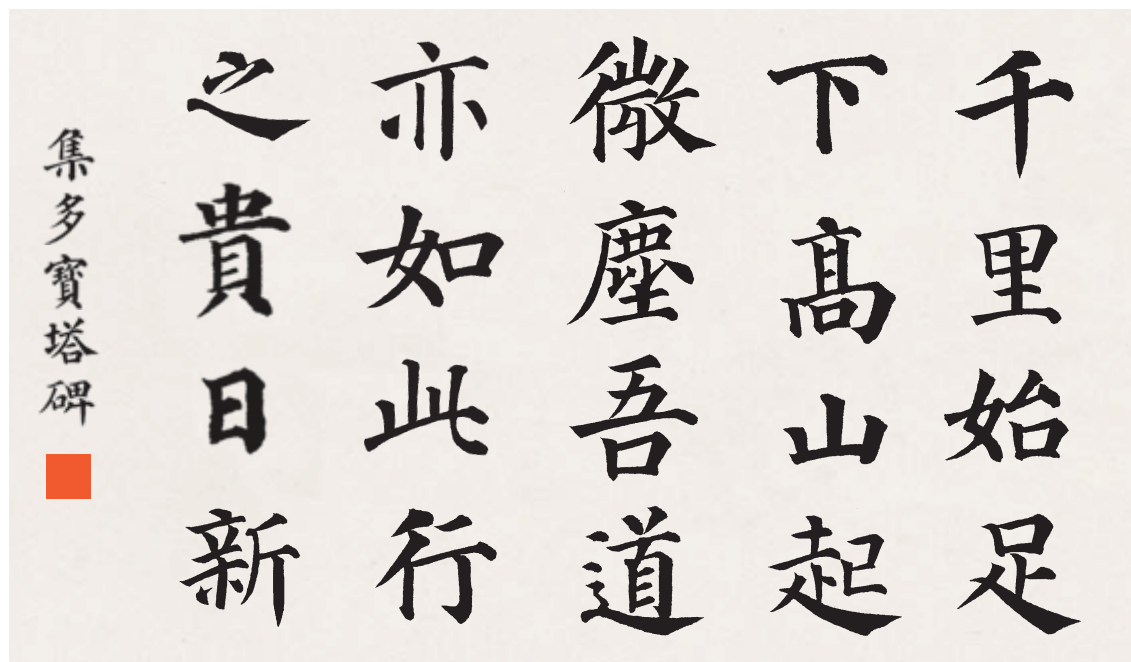 千里始足
下高山起
微塵吾道
亦如此行
之貴日新
集多寶塔碑